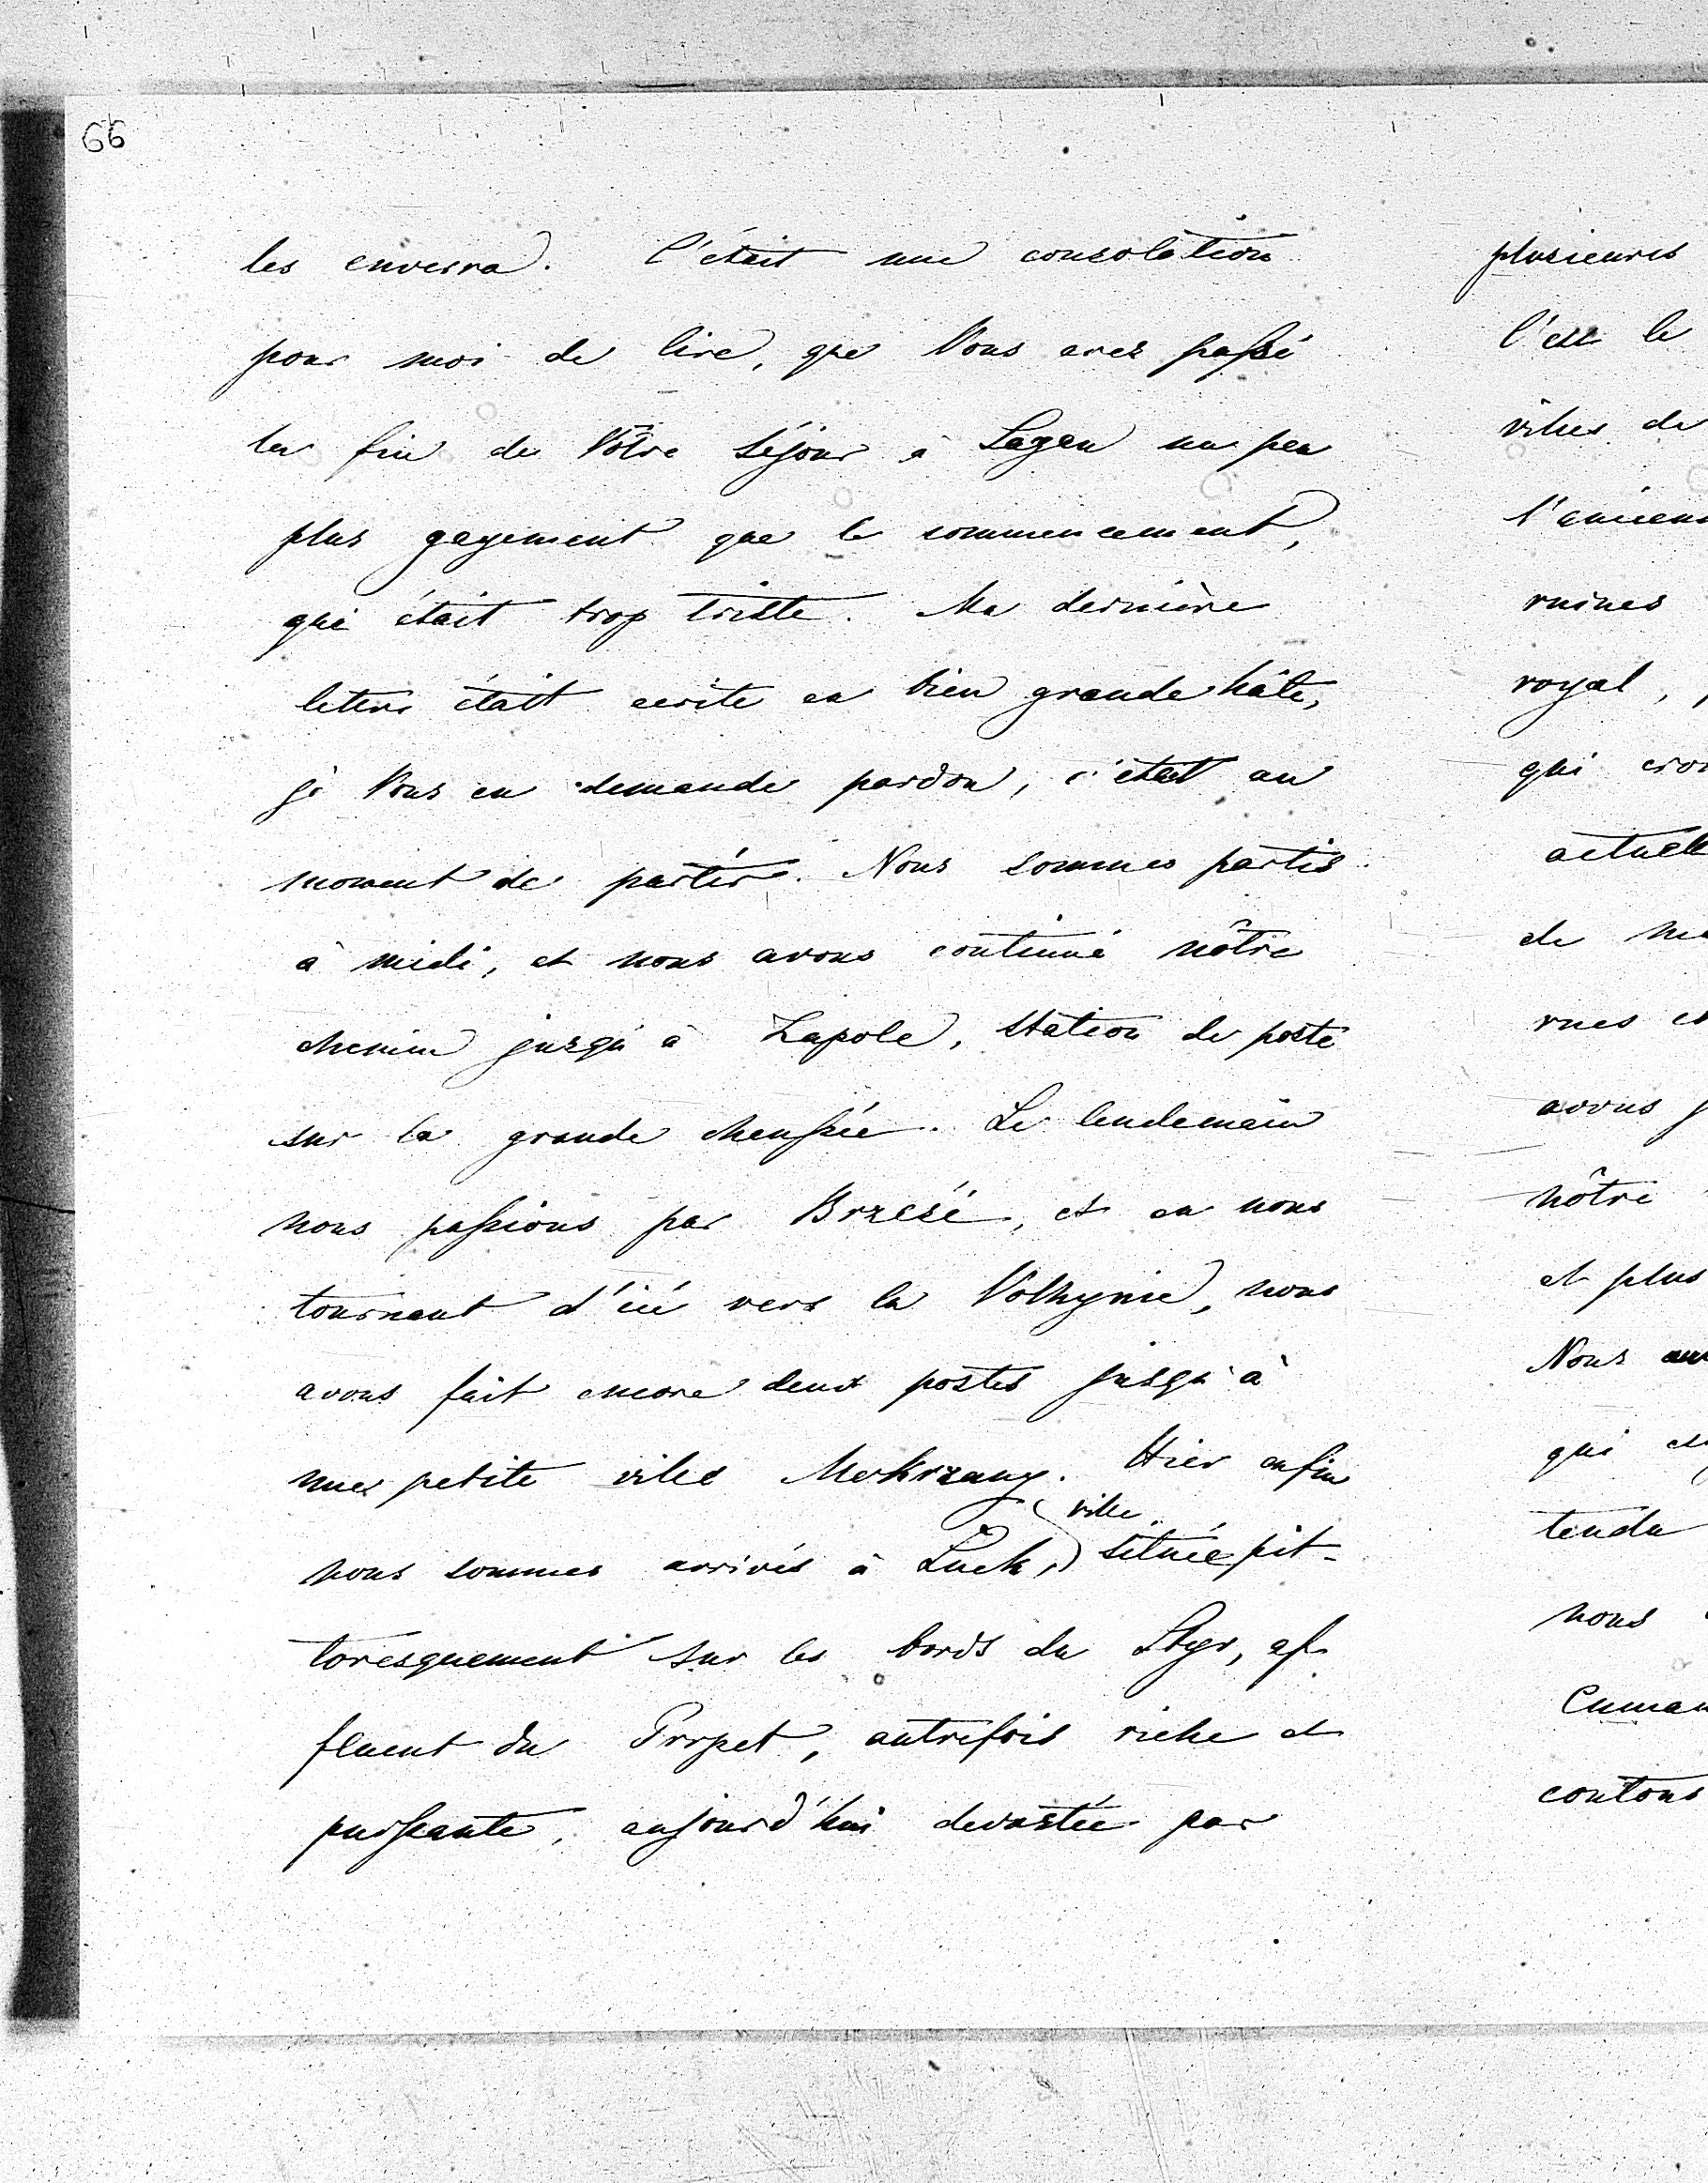 66
les enverra. C'était une consolation
pour moi de lire, que Vous avez passé
la fin de Vôtre séjour à Sagan un peu
plus gayement que le commencement,
qui était trop triste. Ma dernière
lettre était ecrite en bien grande hâte,
je Vous en demande pardon, c'était au
moment de partir. Nous sommes partis
à midi, et nous avons continué nôtre
chemin jusqu'à Zapole, station de poste
sur la grande chaussée. Le lendemain
nous passions par Brzesć, et en nous
tournant d'ici vers la Volhynie, nous
avons fait encore deux postes jusqu'à
une petite ville Mokrzany. Hier enfin
nous sommes arrivés à Luck, ville située pit-
toresquement sur les bords du Styr, af
fluent du Prypet, autrefois riche et
puissante, aujourd'hui devastée par
plusieurs
C'est le
villes de
l'ancienn
ruines
royal,
qui
actuell
de
rues et
avons
nôtre
et plus
Nous
qui
tendu
nous
contons